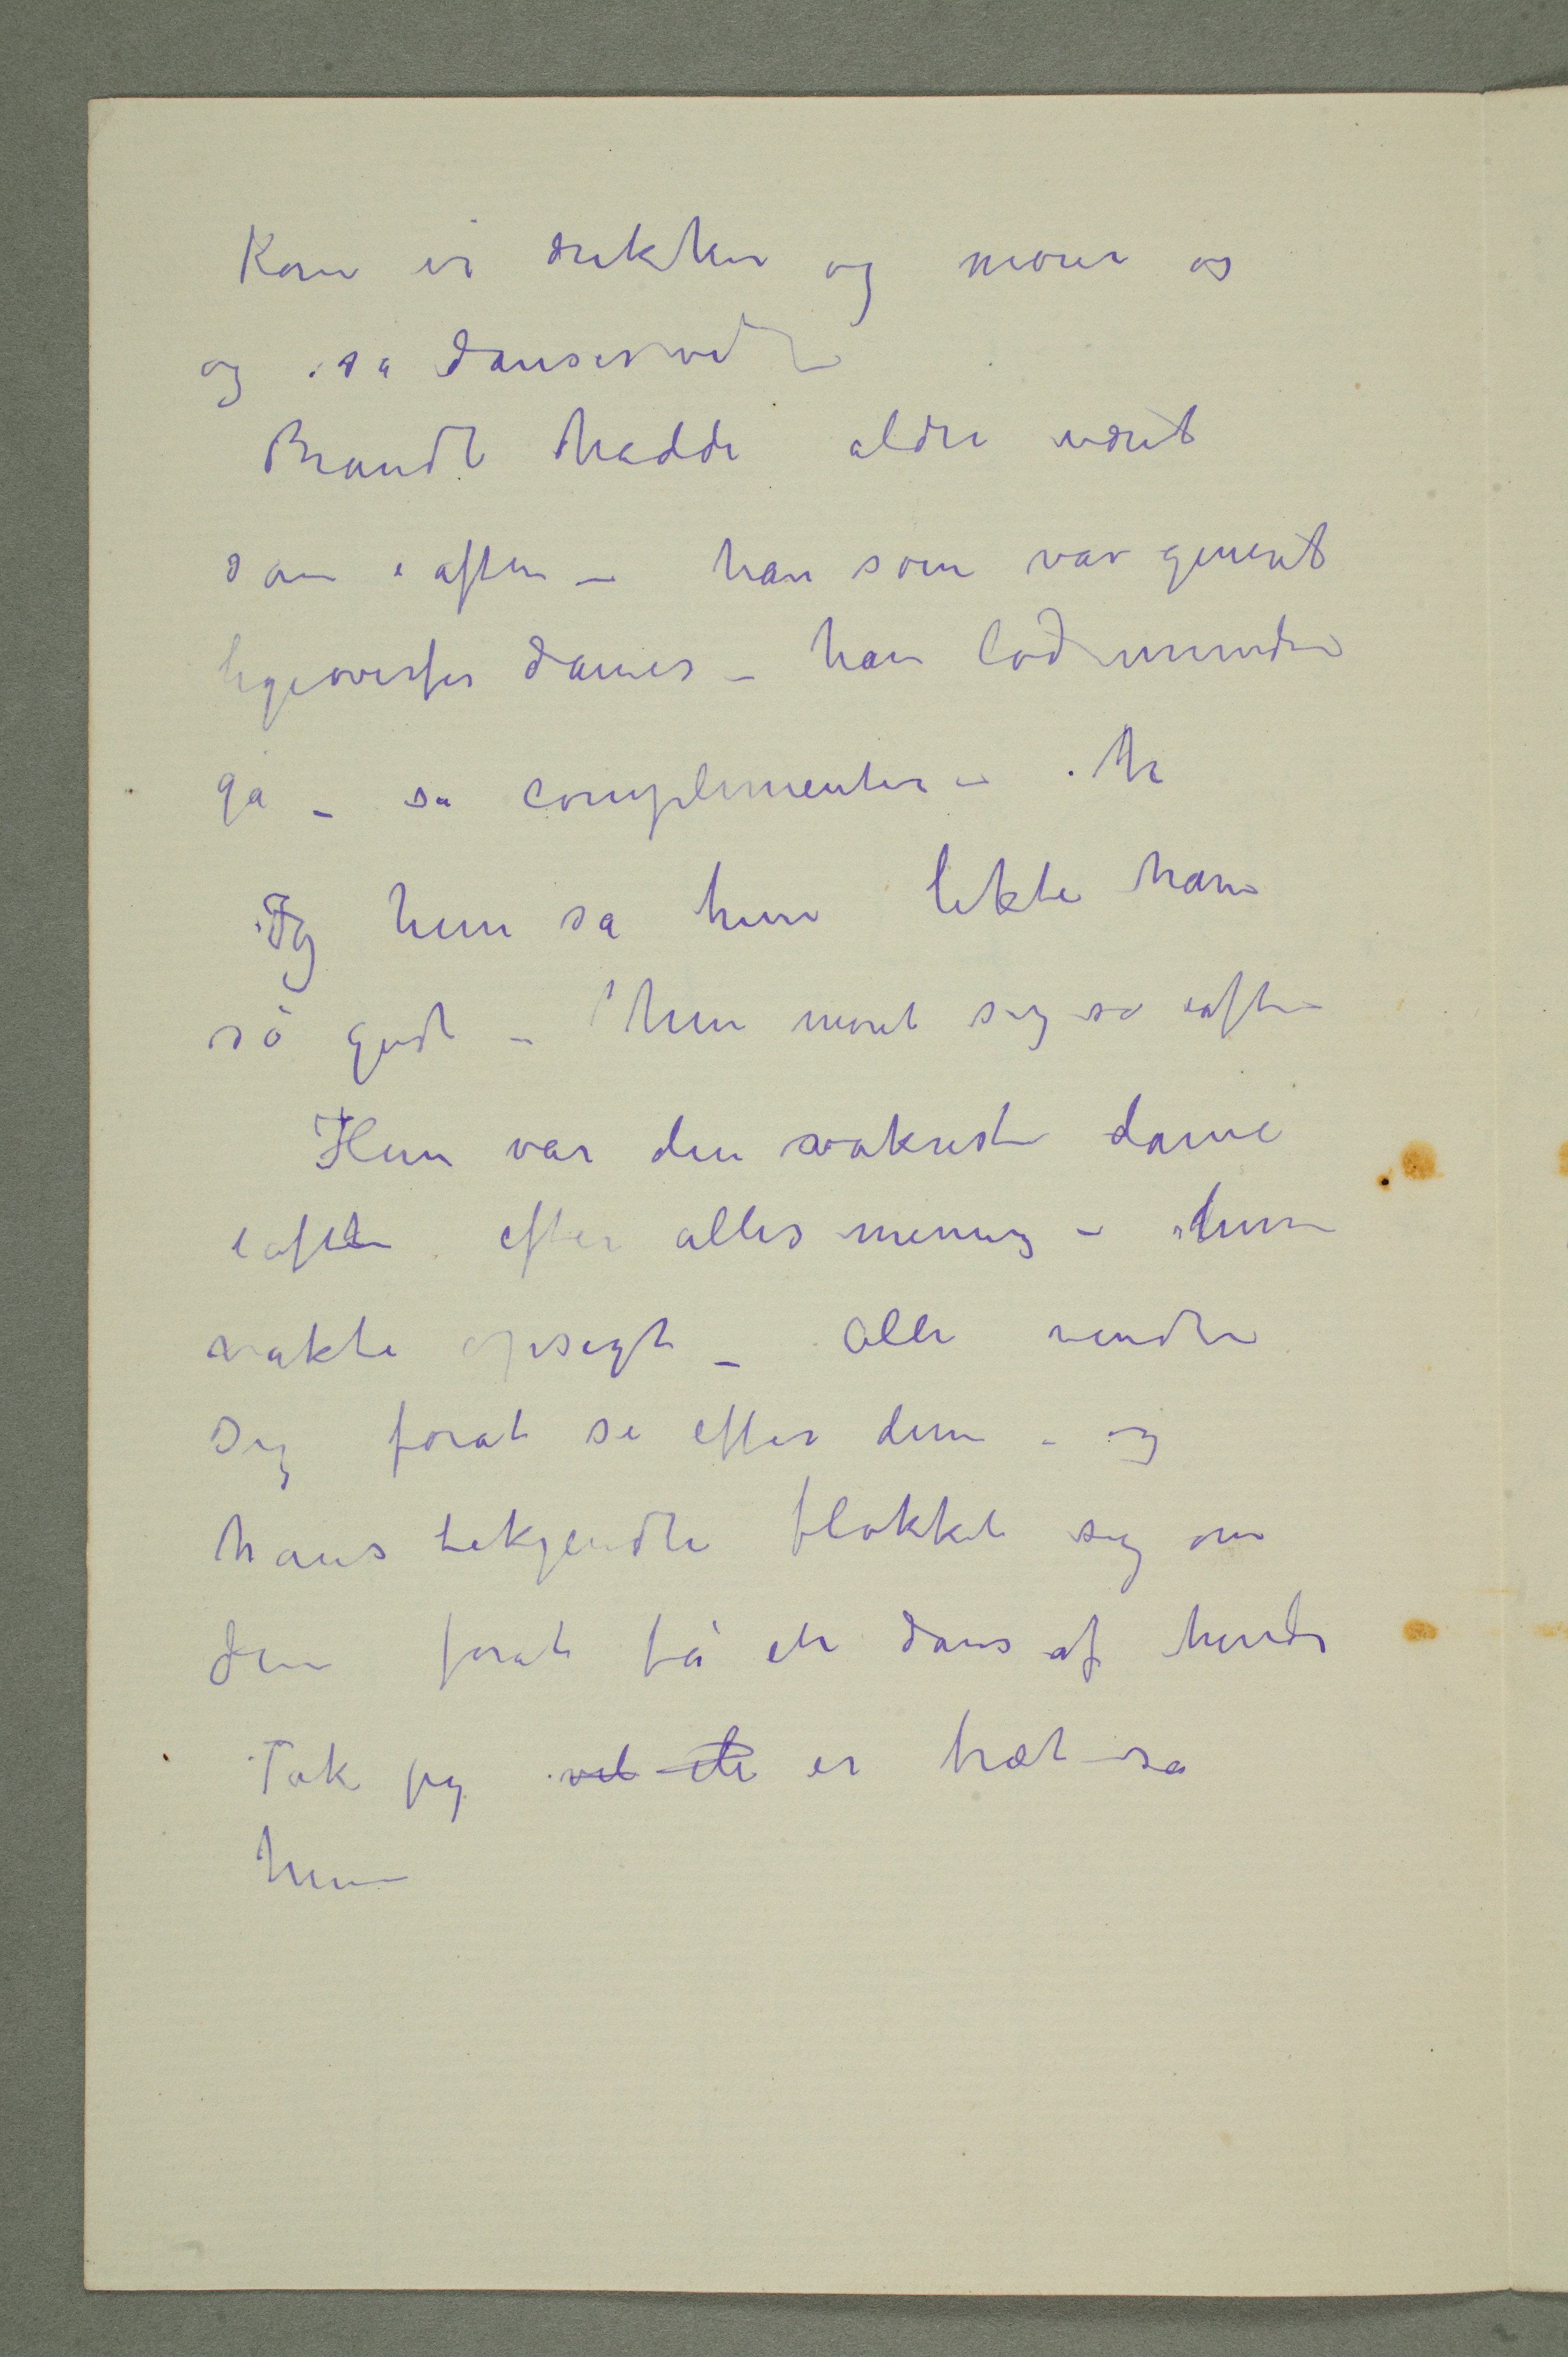 Kom vi drikker og morer os
og så danser vi
Brandt hadde aldri været
som iaften – han som var generet
ligeoverfor damer – han lod munden
gå – sa complimenter –
Og hun sa hun likte ham
så godt – hun moret sig så iaften
Hun var den vakreste dame
iaften efter alles mening – hun
vakte opsigt – alle vendte
sig forat se efter dem – og
hans bekjendte flokket sig om
dem forat få en dans af hende
Tak jeg vil ikke er træt – sa
hun